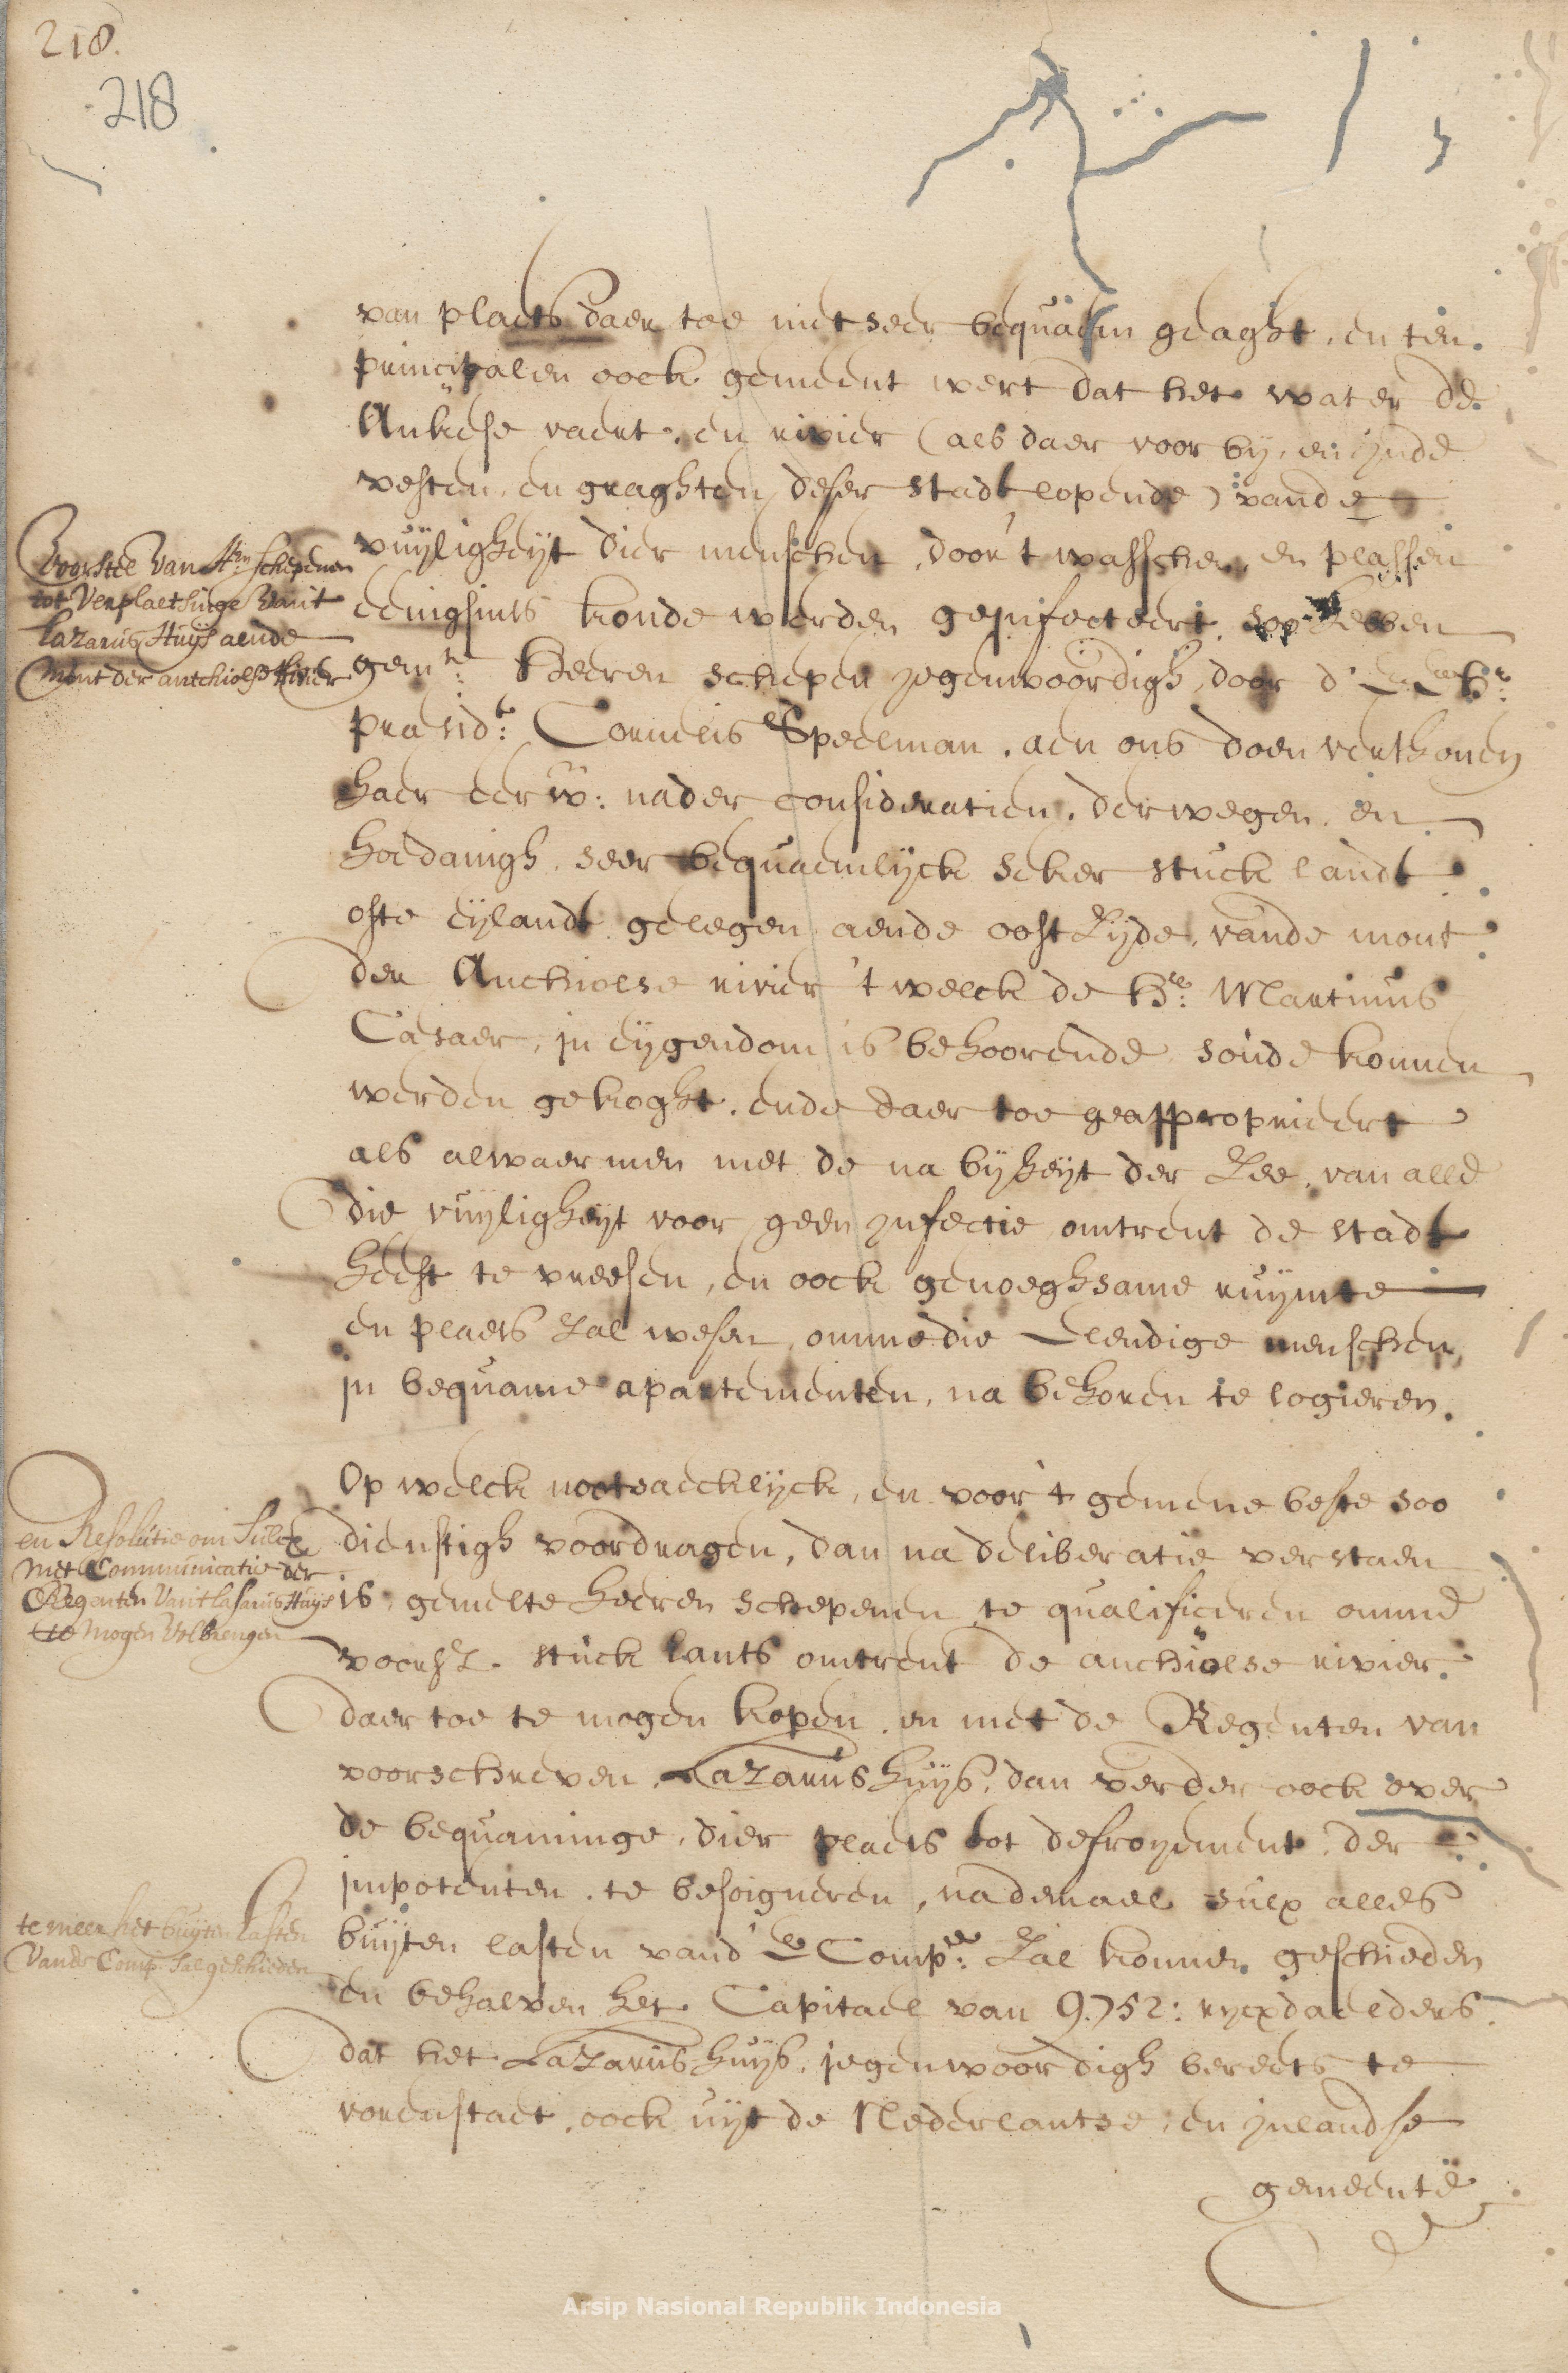 218.
218
van plaets daer toe niet seer bequaem geaght, en ten
principalen oock gemeent wert dat het water de
Ankese vaert, en rivier (als daer voor bij, en jnde
vesten, en graghten deser stadt lopende) vande
vuijligheijt dier menschen, door 't wasschen en plassen
eenighsints konde werden geinfecteert, soo hebben
gemte: Heeren schepen jegenwoordigh, door d'
presidt: Cornelis Speelman, aen ons doen verthonen
haer eerw: nader consideratien, derwegen, en
hoedanigh, seer bequaemlijck seker stuck landt
ofte eijlandt gelegen aende oost zijde, vande mont
der Anchiolse rivier 't welck de Hr: Martinus
Casaer, in eijgendom is behoorende, soude konnen
werden gekoght, ende daer toe geapproprieert
als alwaer men met de na bijheijt der Zee, van alle
die vuijligheijt voor geen jnfectie omtrent de stadt
heeft te vreesen, en oock genoeghsame ruijmte
en plaets zal wesen, omme die Elendige menschen
in bequame apartementen, na behoren te logieren.
Voorstel Van Hrn Schepenen
tot Verplaetsinge Vant
Lazarus Huijs aende
Mont der antchiolse Rivier
Op welck nootsaecklijck, en voor 't gemene beste soo
dienstigh voordragen, dan na deliberatie verstaen
is, gemelte Heeren schepenen te qualificeren omme
voorsz. stuck lants omtrent de anchiolse rivier
daer toe te mogen kopen, en met de Regenten van
voorschreven Lazarus huijs, dan verder oock over
de bequaminge, dier plaets tot defroyement, der
impotenten, te besoigneren, nademael sulx alles
buijten lasten vand' E Compe: Zal konnen geschieden
en behalven het Capitael van 9752: rijcxdaelders
dat het Lazarus huijs, jegenwoordigh bereets te
voren staet, oock uijt de Nederlantse, en jnlandse
gemeente
en Resolutie om Sulcx
met Communicatie der
Regenten Van't Lasarus Huijs
te mogen Volbrengen
te meer het buijten Lasten
Vande Comp: Sal geschieden
Arsip Nasional Republik Indonesia